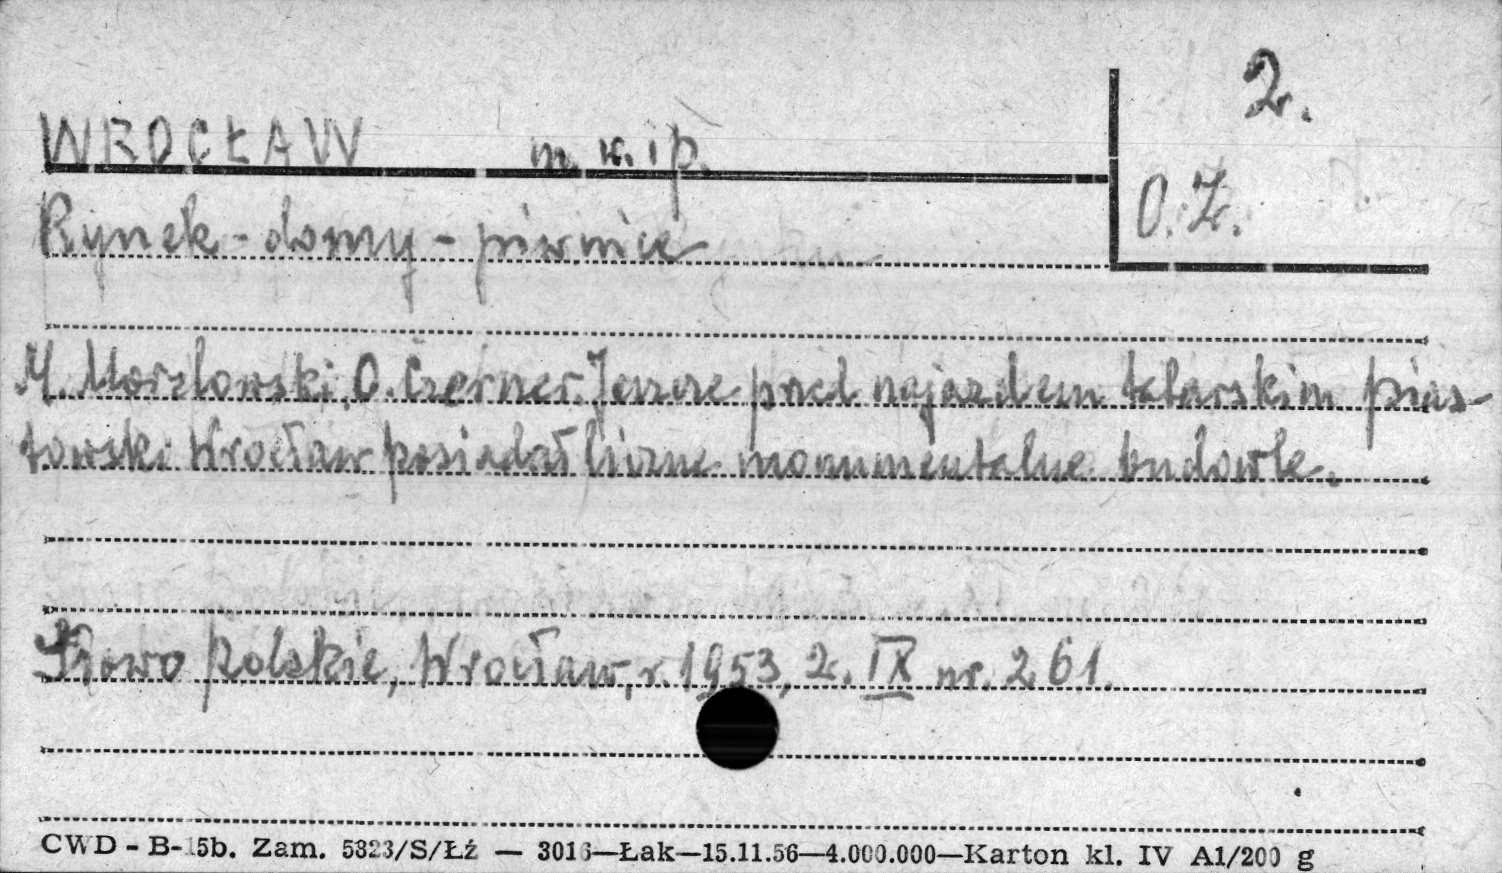 2.
WROCŁAW m. w. i p.
O.Z.
Rynek - domy - piwnice
M. Morelowski, O. Czerner. Jeszcze przed najazdem tatarskim pias-
towski Wrocław posiadał liczne monumentalne budowle.
Słowo Polskie, Wrocław, r. 1953, 2. IX nr. 261.
CWD - B-15b. Zam. 5323/S/Łź — 3016—Łak—15.11.56—4.000.000—Karton kl. IV A1/200 g